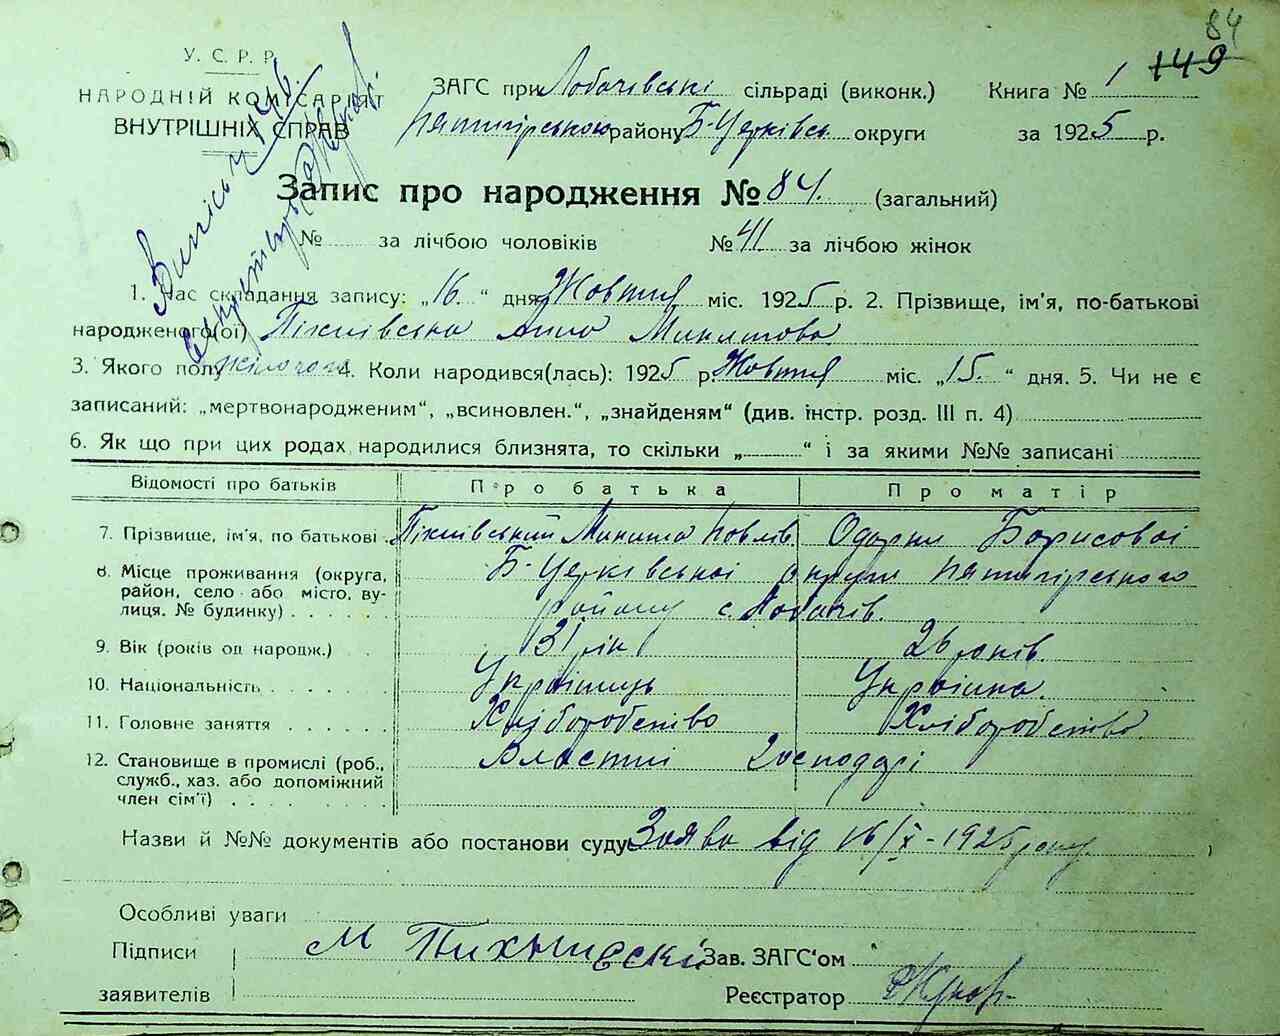 84
149
У. С. Р. Р.
НАРОДНІЙ КОМІСАРІЯТ
ВНУТРІШНІХ СПРАВ
ЗАГС при Лобачівські сільраді (виконк.) Книга № 1
Пятигірською району Б-Церківсь округи за 1925 р.
Запис про народження № 84. (загальний)
№ за лічбою чоловіків № 41 за лічбою жінок
1. Час складання запису: „16“ дня Жовтня міс. 1925 р. 2. Прізвище, ім'я, по-батькові
народженого(ої) Анна Микитова
3. Якого полу жіночого 4. Коли народився(лась): 1925 р. Жовтня міс. „15.“ дня. 5. Чи не є
записаний: „мертвонародженим“, „всиновлен.“, „знайденям“ (див. інстр. розд. III п. 4)
6. Як що при цих родах народилися близнята, то скільки „ “ і за якими №№ записані
Відомості про батьків Про батька Про матір
7. Прізвище, ім'я, по батькові Микита Павлів Одарки Борисової
8. Місце проживання (округа, Б-Церківської округи Пятигірського
район, село або місто, ву-
лиця. № будинку) району с. Лобачів.
9. Вік (років од народж.) 31 рік 26 років.
10. Національність Українець Українка.
11. Головне заняття Хліборобство Хліборобство.
12. Становище в промислі (роб., Власні господарі
служб., хаз. або допоміжний
член сім'ї)
Назви й №№ документів або постанови суду Заява від 16/X-1925 року.
Особливі уваги
Підписи М Зав. ЗАГС'ом
заявителів Реєстратор